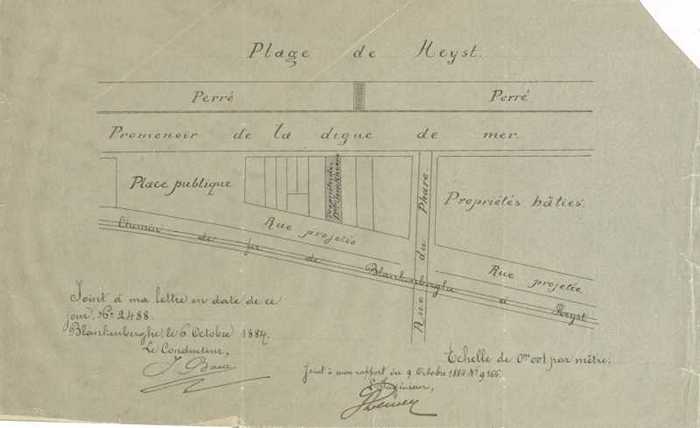 Plage de Heyst.
Perré Perré
Promenoir de la digue de mer.
Place publique
propriété de
Rue du Phare
Propriétés bâties.
Rue projetée
Rue projetée
Chemin de fer de Blankenberghe à Heyst
Joint à ma lettre en date de ce
jour, N° 2488.
Blankenberghe, le 6 Octobre 1884.
Le Conducteur,
Echelle de 0m001 par mètre.
Joint à mon rapport du 9 Octobre 1884 N° 9166.
L'Ingénieur,